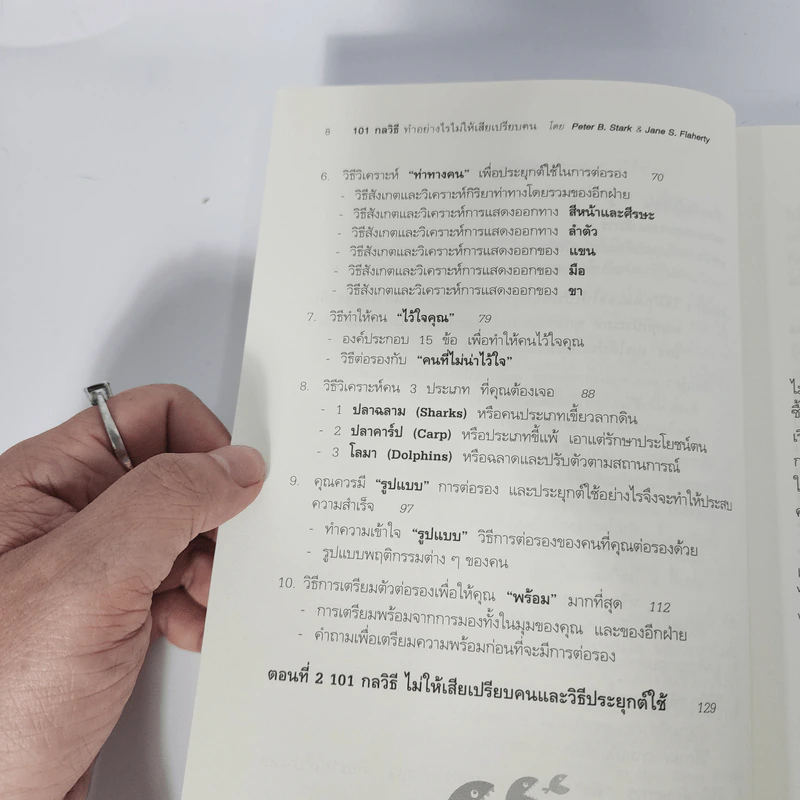 8 101 กลวิธี ทำอย่างไรไม่ให้เสียเปรียบคน โดย Peter B. Stark & Jane S. Flaherty
6. วิธีวิเคราะห์ “ท่าทางคน” เพื่อประยุกต์ใช้ในการต่อรอง 70
- วิธีสังเกตและวิเคราะห์กิริยาท่าทางโดยรวมของอีกฝ่าย
- วิธีสังเกตและวิเคราะห์การแสดงออกทาง สีหน้าและศีรษะ
- วิธีสังเกตและวิเคราะห์การแสดงออกทาง ลำตัว
- วิธีสังเกตและวิเคราะห์การแสดงออกของ แขน
- วิธีสังเกตและวิเคราะห์การแสดงออกของ มือ
- วิธีสังเกตและวิเคราะห์การแสดงออกของ ขา
7. วิธีทำให้คน “ไว้ใจคุณ” 79
- องค์ประกอบ 15 ข้อ เพื่อทำให้คนไว้ใจคุณ
- วิธีต่อรองกับ “คนที่ไม่น่าไว้ใจ”
8. วิธีวิเคราะห์คน 3 ประเภท ที่คุณต้องเจอ 88
- 1 ปลาฉลาม (Sharks) หรือคนประเภทเขี้ยวลากดิน
- 2 ปลาคาร์ป (Carp) หรือประเภทขี้แพ้ เอาแต่รักษาประโยชน์ตน
- 3 โลมา (Dolphins) หรือฉลาดและปรับตัวตามสถานการณ์
9. คุณควรมี “รูปแบบ” การต่อรอง และประยุกต์ใช้อย่างไรจึงจะทำให้ประสบ
ความสำเร็จ 97
- ทำความเข้าใจ “รูปแบบ” วิธีการต่อรองของคนที่คุณต่อรองด้วย
- รูปแบบพฤติกรรมต่าง ๆ ของคน
10. วิธีการเตรียมตัวต่อรองเพื่อให้คุณ “พร้อม” มากที่สุด 112
- การเตรียมพร้อมจากการมองทั้งในมุมของคุณ และของอีกฝ่าย
- คำถามเพื่อเตรียมความพร้อมก่อนที่จะมีการต่อรอง
ตอนที่ 2 101 กลวิธี ไม่ให้เสียเปรียบคนและวิธีประยุกต์ใช้ 129